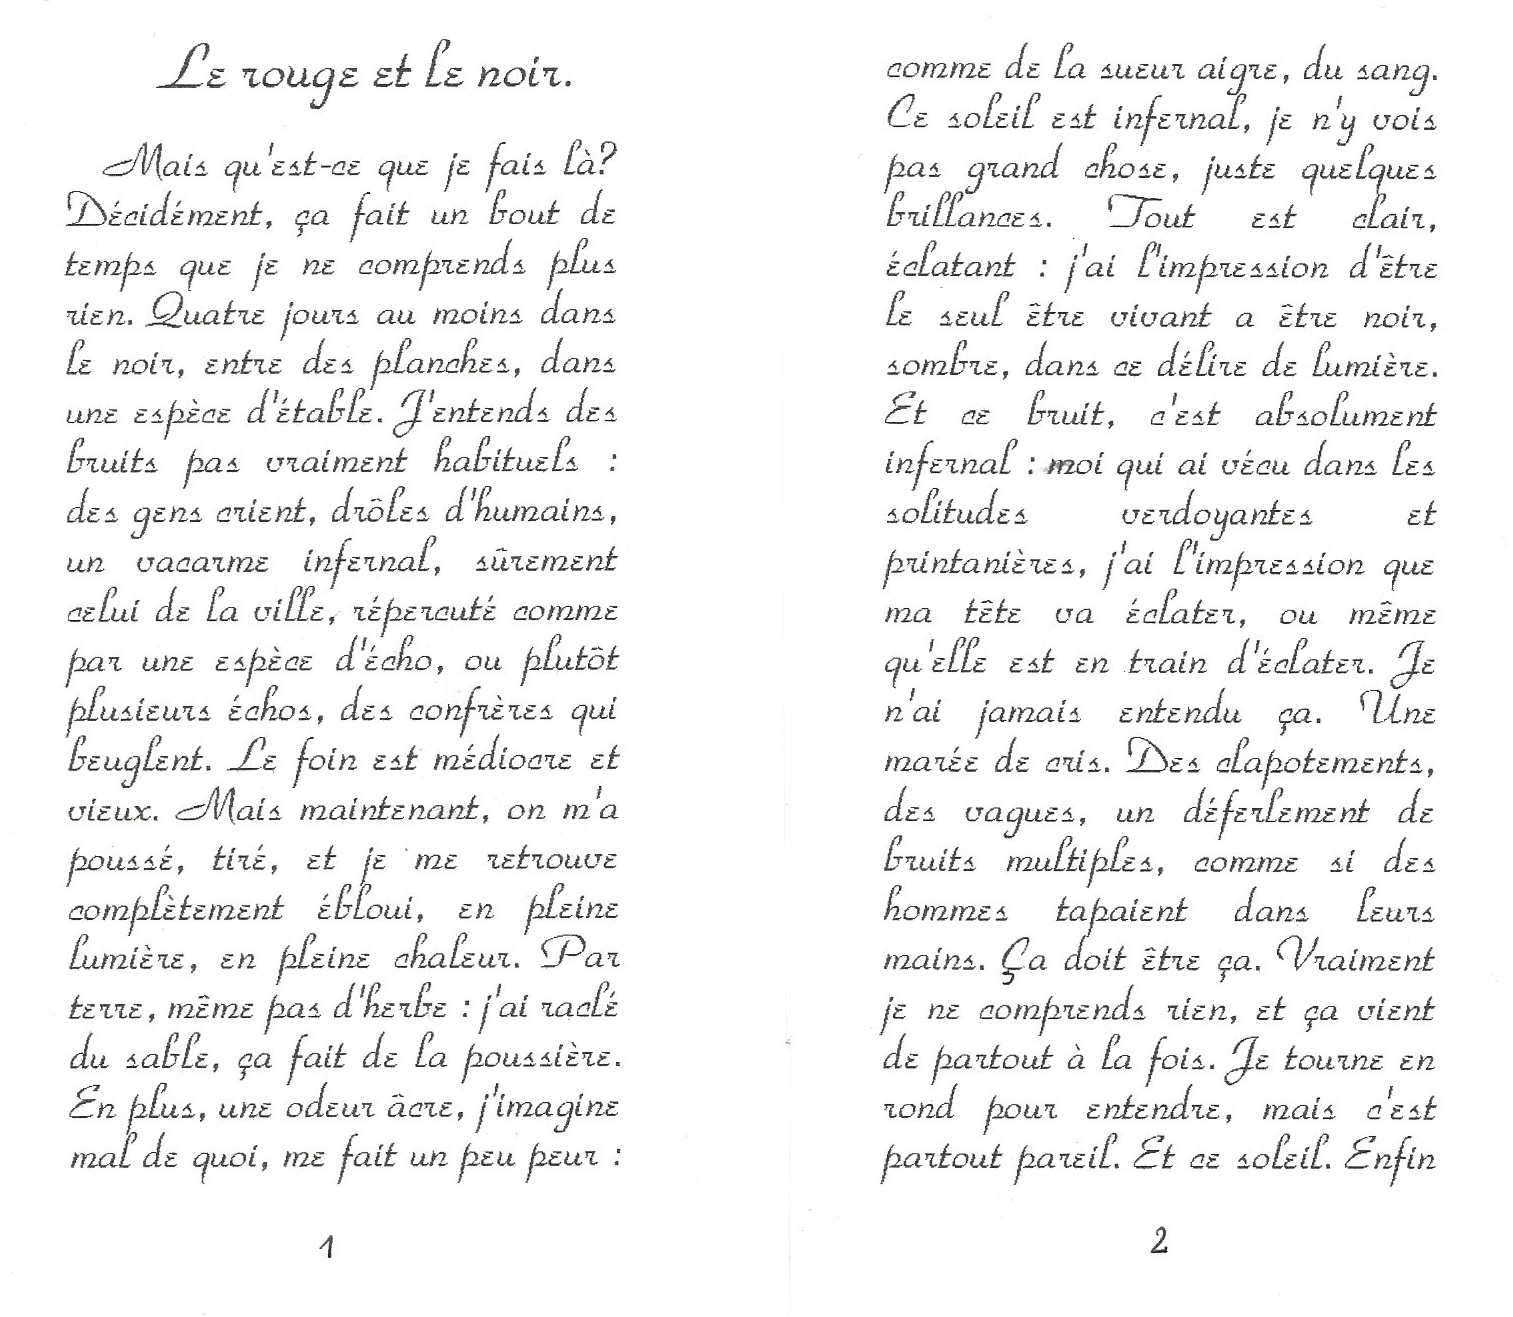 Le rouge et le noir.
Mais qu'est-ce que je fais là?
Décidément, ça fait un bout de
temps que je ne comprends plus
rien. Quatre jours au moins dans
le noir, entre des planches, dans
une espèce d'étable. J'entends des
bruits pas vraiment habituels :
des gens crient, drôles d'humains,
un vacarme infernal, sûrement
celui de la ville, répercuté comme
par une espèce d'écho, ou plutôt
plusieurs échos, des confrères qui
beuglent. Le foin est médiocre et
vieux. Mais maintenant, on m'a
poussé, tiré, et je me retrouve
complètement ébloui, en pleine
lumière, en pleine chaleur. Par
terre, même pas d'herbe : j'ai raclé
du sable, ça fait de la poussière.
En plus, une odeur âcre, j'imagine
mal de quoi, me fait un peu peur :
1
comme de la sueur aigre, du sang.
Ce soleil est infernal, je n'y vois
pas grand chose, juste quelques
brillances. Tout est clair,
éclatant : j'ai l'impression d'être
le seul être vivant a être noir,
sombre, dans ce délire de lumière.
Et ce bruit, c'est absolument
infernal : moi qui ai vécu dans les
solitudes verdoyantes et
printanières, j'ai l'impression que
ma tête va éclater, ou même
qu'elle est en train d'éclater. Je
n'ai jamais entendu ça. Une
marée de cris. Des clapotements,
des vagues, un déferlement de
bruits multiples, comme si des
hommes tapaient dans leurs
mains. Ça doit être ça. Vraiment
je ne comprends rien, et ça vient
de partout à la fois. Je tourne en
rond pour entendre, mais c'est
partout pareil. Et ce soleil. Enfin
2